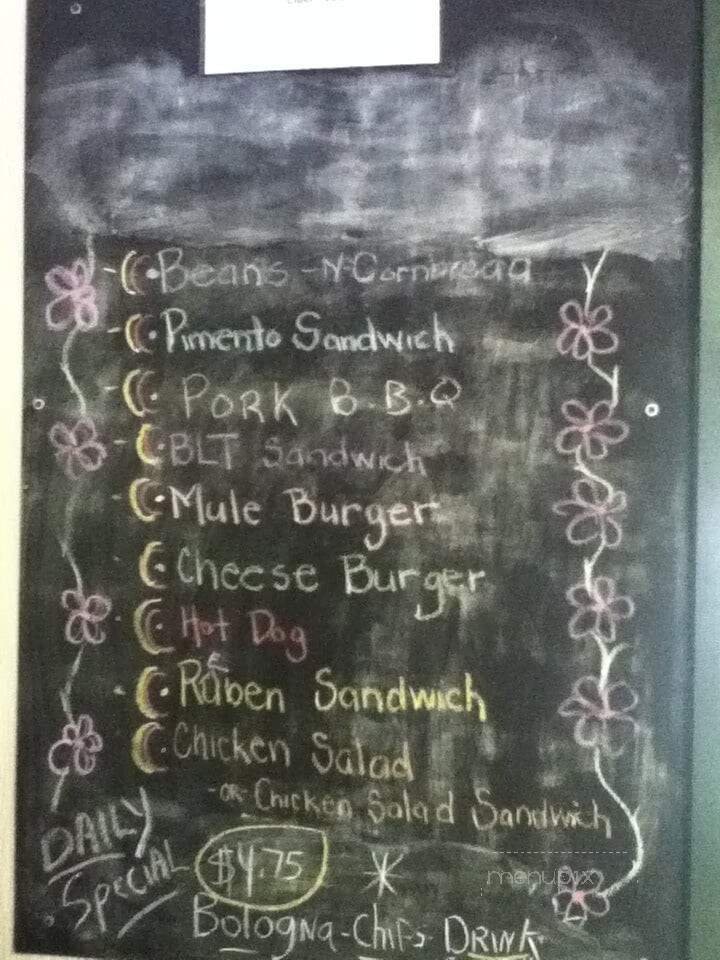 Beans-N-Cornbread
Pimento Sandwich
PORK B.B.Q
BLT Sandwich
Mule Burger
Cheese Burger
Hot Dog
Ruben Sandwich
e
Chicken Salad
-or- Chicken Salad Sandwich
DAILY
Special
$4.75
menupix
Bologna-Chips DRINK